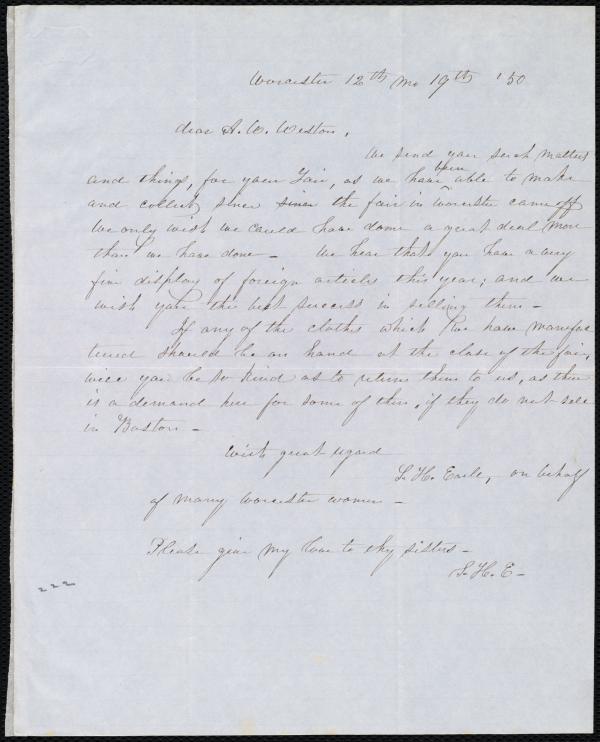 Worcester 12th mo 19th '50
dear A. W. Weston,
We send you such matters
and things, for your Fair, as we have been able to make
and collect since since the fair in Worcester came off
We only wish we could have done a great deal more
than we have done - We hear that you have a very
fine display of foreign articles this year; and we
wish you the best success in selling them -
If any of the clothes which we have manufac
tured should be on hand at the close of the fair,
will you be so kind as to return them to us, as there
is a demand here for some of them, if they do not sell
in Boston -
With great regard
S. H. Earle, on behalf
of many Worcester women -
Please give my love to thy sisters -
S. H. E -
222